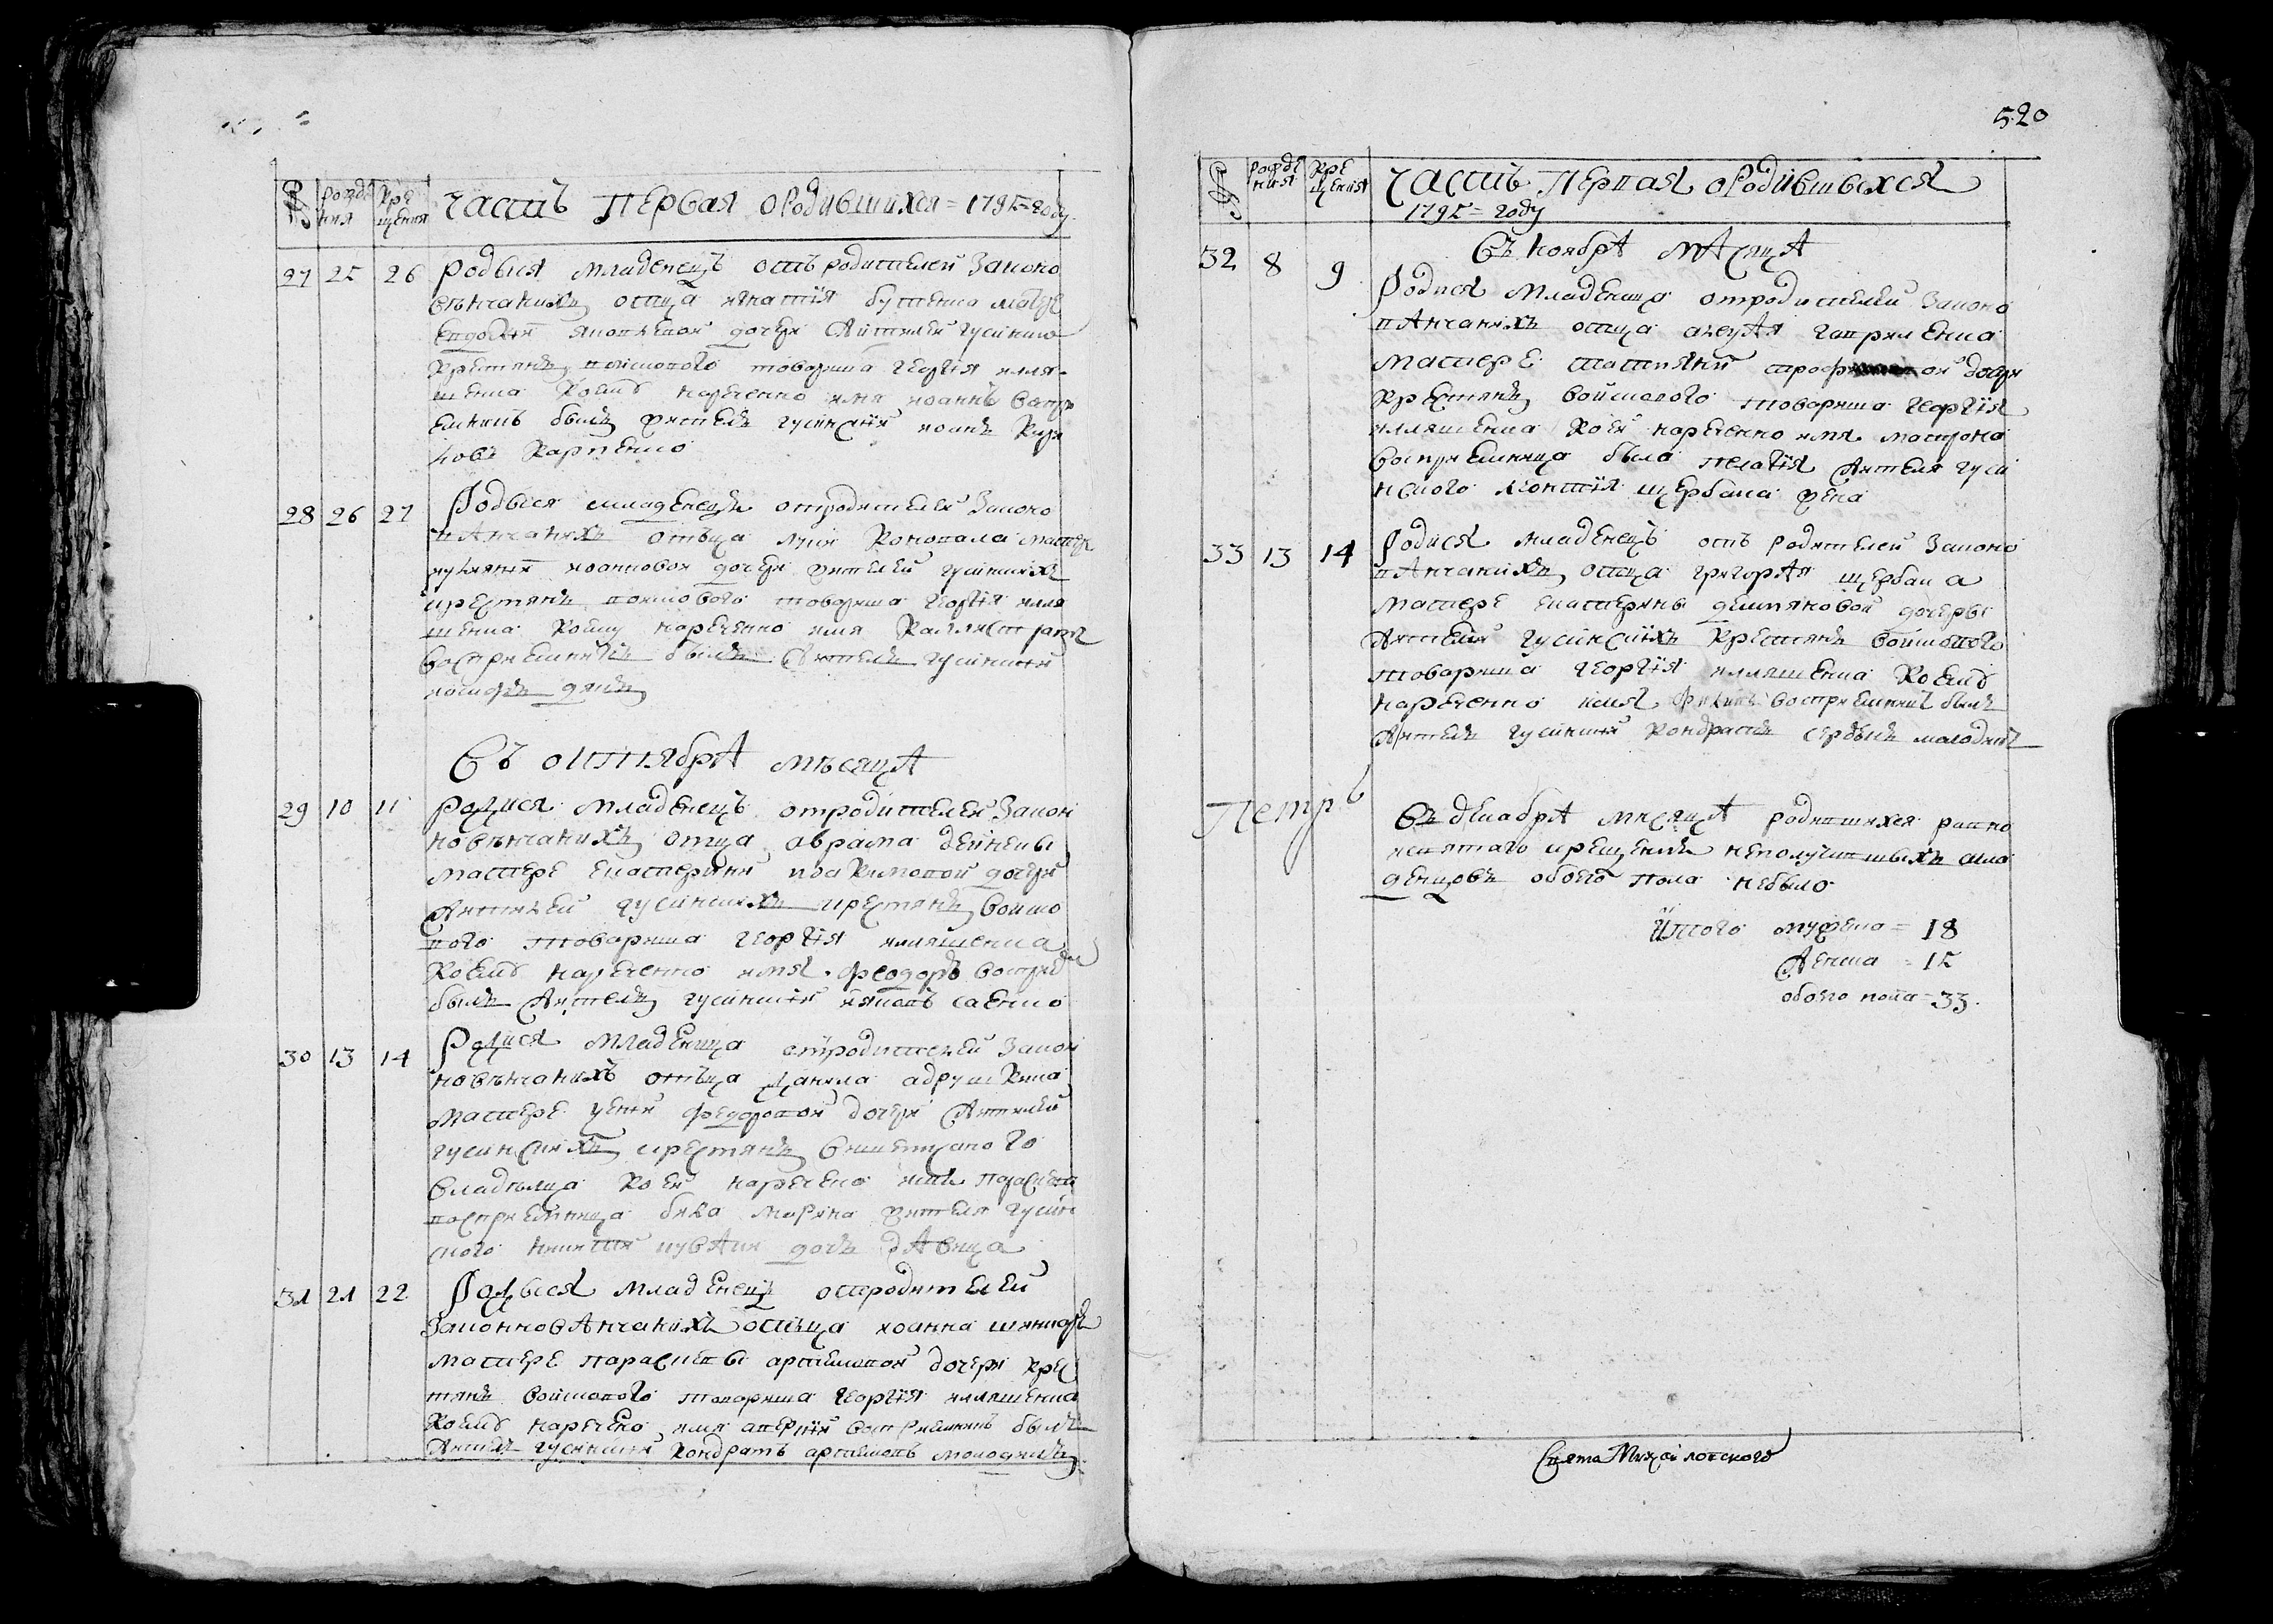 № рожде ния кре щения Часть Первая ородившихся = 1795 = году
27 25 26 Родыся младенецъ отъ родителей законо
венчаних отца бутенко матере
дочери жителей гусинско
крестянъ войскового товариша георгия илля
шенка коему нареченно имя иоаннъ воспри
емникъ былъ жителъ гусинский иоанъ
ловъ карпенко
28 26 27 Родыся младенецъ отродителей законо
вѣнчанихъ отъца коновала матере
иоанновой дочери жителей гусинскихъ
крестянъ войскового товариша георгия илля
шенка коему нареченно имя каллистратъ
восприемникъ былъ жителъ гусинский
иосифъ дякъ
Въ октябрѣ мѣсяцѣ
29 10 11 родися младенецъ отродителей закон
новѣнчанихъ отца аврама дейнеки
матере екатерини иоакимовой дочери
жителей гусинскихъ крестянъ войско
вого товариша георгия илляшенка
коему нареченно имя феодоръ воспри
былъ жителъ гусинский яковъ саенко
30 13 14 Родися младеница отродителей закон
новѣнчанихъ отъца данила
матере федоровой дочери жителей
гусинскихъ крестянъ вишеписаного
владѣлца коей наречено имя параскева
восприемница била марина жителя гусин
ского дочь дѣвица
31 21 22 Родыся младенецъ отродителей
законновѣнчанихъ отъца иоанна
матере параскевы артемовой дочери крес
тянъ войскового товариша георгия илляшенка
коему наречено имя восприемникъ былъ
жителъ гусинский кондратъ артемовъ молодикъ
520
№ рожде ния кре щения Часть Первая ородившыхся
1795 = году
32 8 9 Въ ноябрѣ мѣсяцѣ
Родися младеница отродителей законо
вѣнчанихъ отца гавриленка
матере татияни дочери
крестянъ войскового товариша георгия
илляшенка коей нареченно имя матрона
восприемница была пелагия жителя гуси
нского леонтия щербака жена
33 13 14 Родися младенецъ отъ родителей законо
вѣнчанихъ отца григорѣя щербака
матере екатерины демяновой дочеры
жителей гусинскихъ крестянъ войскового
товариша георгия илляшенка коему
нареченно имя восприемникъ былъ
жителъ гусинский кондратъ молодикъ
Петръ
Въ декабрѣ мѣсяцѣ родившихся равно
исвятаго крещения неполучившыхъ мла
денцовъ обоего пола небыло
Итого мужеска = 18
женска = 15
обоего пола = 33.
Свято Михайловского